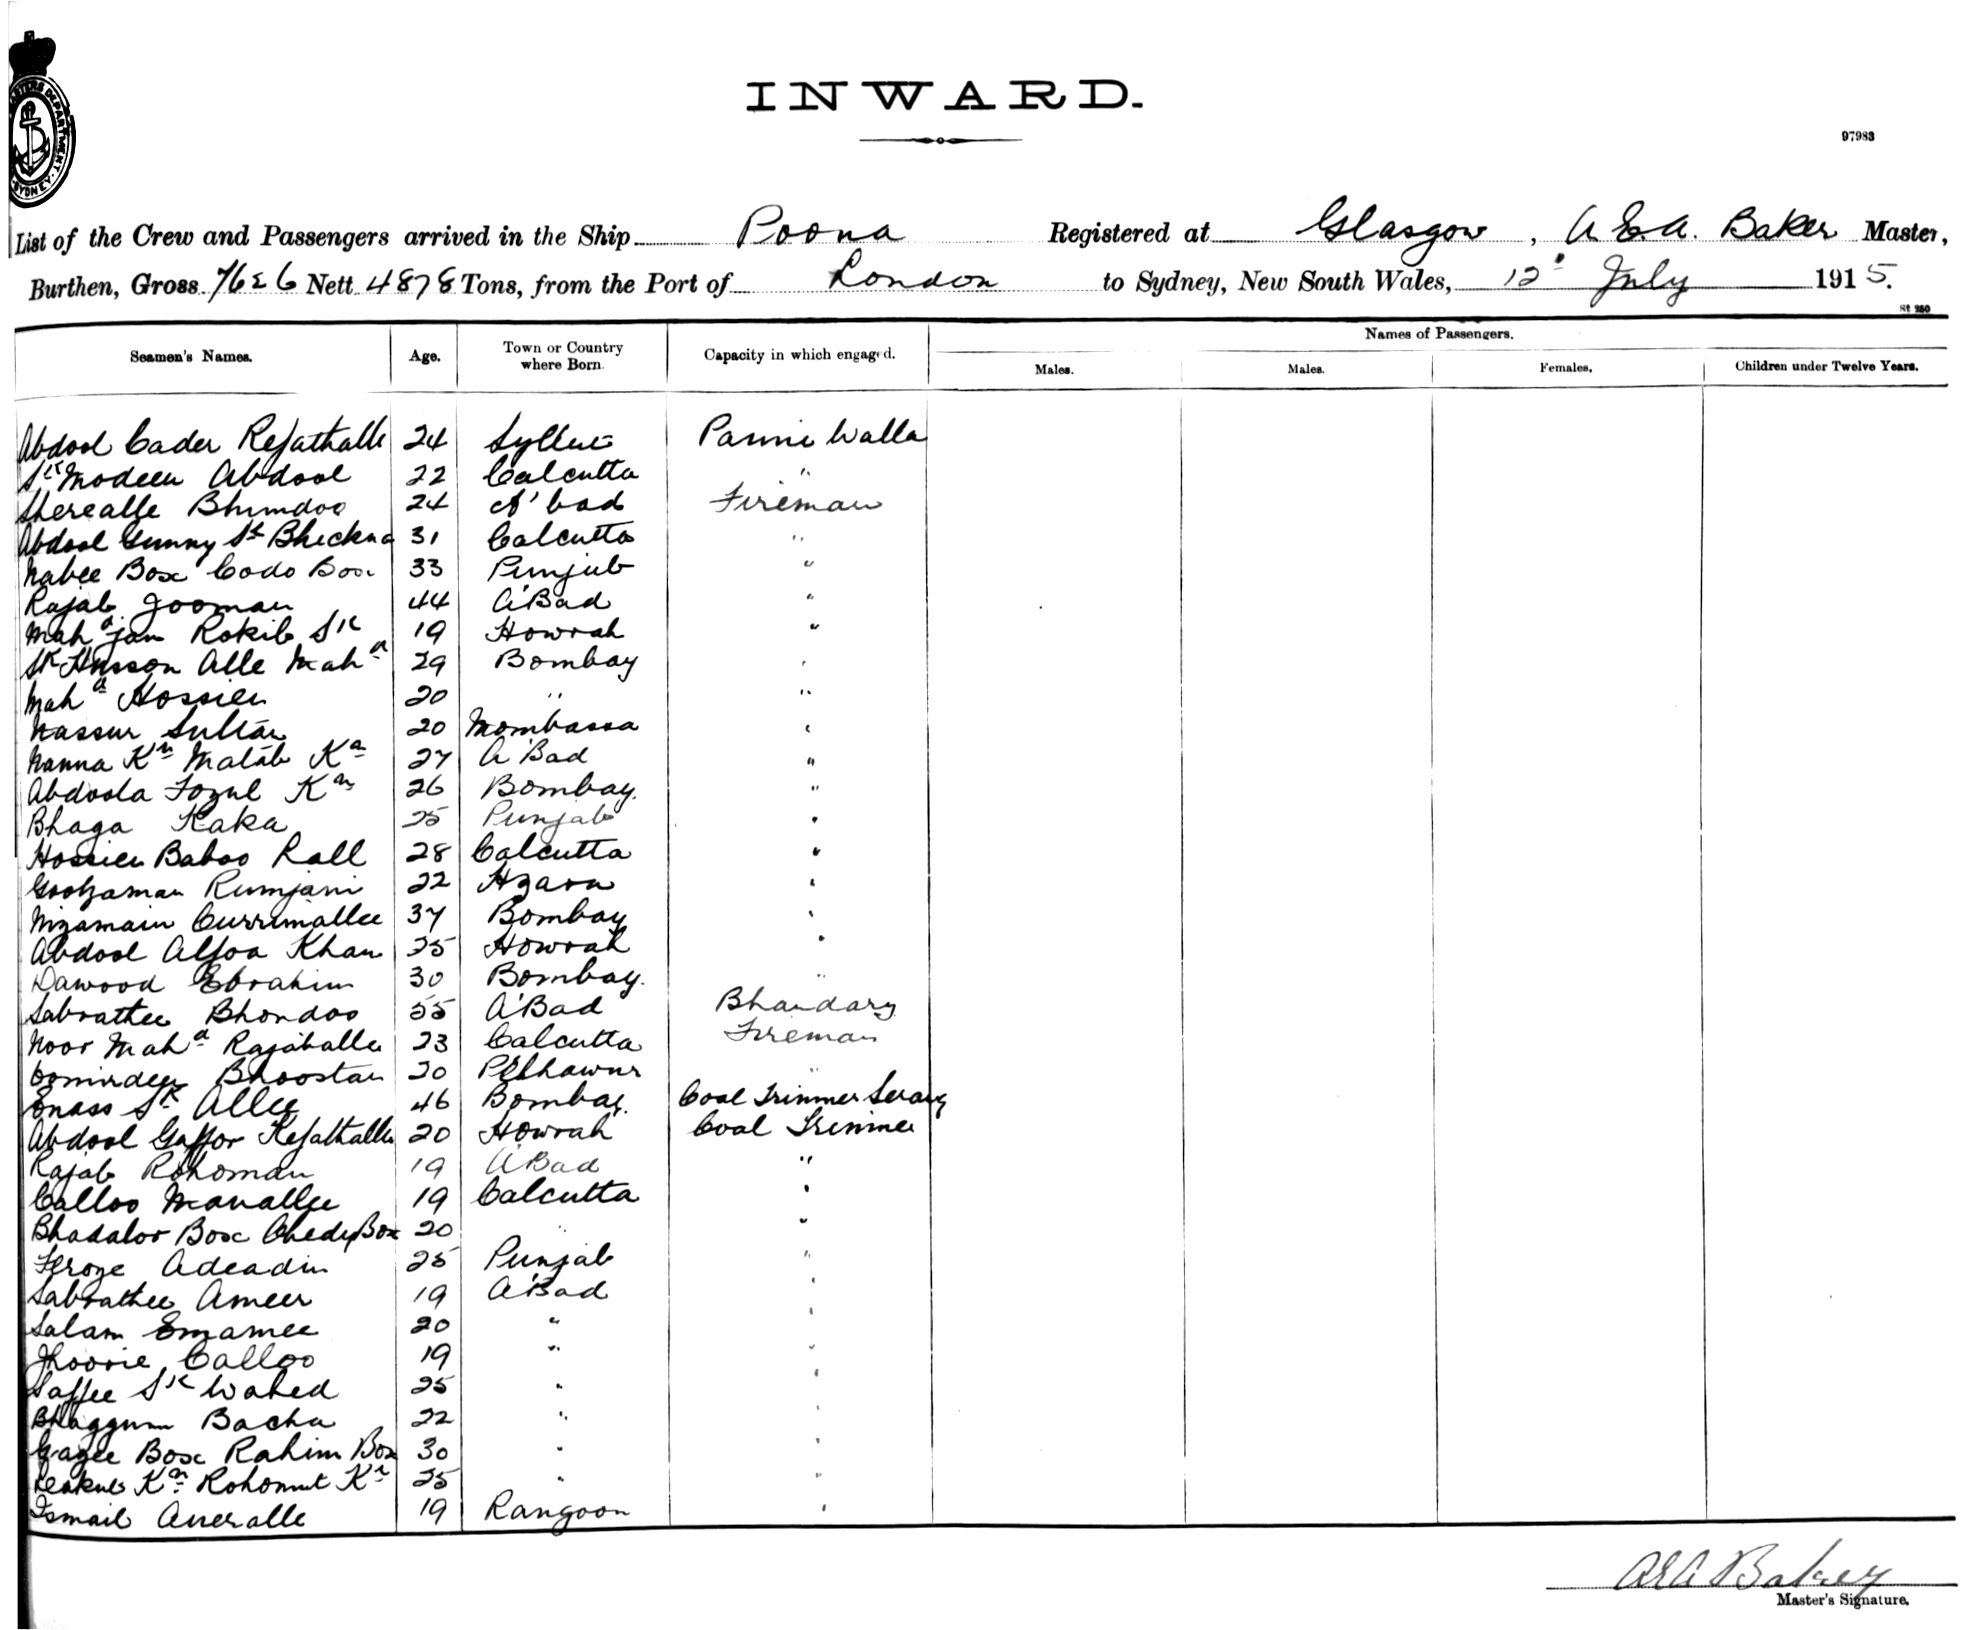 INWARD.
97983
List of the Crew and Passengers arrived in the Ship Poona Registered at Glasgow, A E.A. Baker Master,
Burthen, Gross 7626 Nett 4878 Tons, from the Port of London to Sydney, New South Wales, 12 July 1915.
St 250
Names of Passengers.
Seamen's Names. Age. Town or Country where Born. Capacity in which engaged. Males. Males. Females. Children under Twelve Years.
Abdool Cader Refathalle 24 Pannie Walla
Sk Modeen Abdool 22 Calcutta "
Sherealle Bhundoo 24 A'bad Fireman
Abdool Gunny Sk Bheckna 31 Calcutta "
Nabee Box Codo Box 33 Punjub "
Rajab Jooman 44 A'Bad "
Mahd jan Rokib Sk 19 Howrah "
Sk Husson Alle Mahd 29 Bombay "
Mahd Hossien 20 " "
Nassur Sultan 20 Mombassa "
Nanna Kn Matab Kn 27 A'Bad "
Abdoola Fozul Kn 26 Bombay "
Bhaga Kaka 25 Punjab "
Hossien Baboo Rall 28 Calcutta "
Goolzaman Rumjani 22 Hzara "
Nizamain Currimallee 37 Bombay "
Abdool Khan 25 Howrah "
Dawood Ebrahim 30 Bombay "
Sabrathee Bhondoo 55 A'Bad Bhandary
Noor Mahd Rajaballe 23 Calcutta Fireman
Bhoostan 20 Peshawur "
Enass Sk Allee 46 Bombay Coal Trimmer Serang
Abdool Gaffor Refathalle 20 Howrah Coal Trimmer
Rajab Rohoman 19 A'Bad "
Calloo Manallee 19 Calcutta "
Bhadaloo Box Box 20 " "
Feroze Adeadin 25 Punjab "
Sabrathee Ameer 19 A'Bad "
Salam Emamee 20 " "
Jhoorie Calloo 19 " "
Saffee Sk Wahed 25 " "
Bhaggum Bacha 22 " "
Box Rahim Box 30 " "
Kn Rohomut Kn 25 " "
Ismail Aneralle 19 Rangoon "
AEA Baker
Master's Signature.